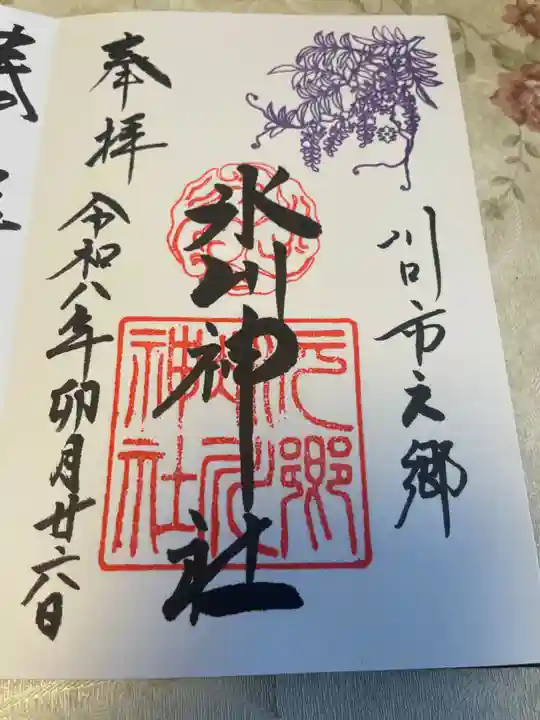 川口市元郷
氷川神社
元郷
氷川
神社
奉拝
令和八年卯月廿六日